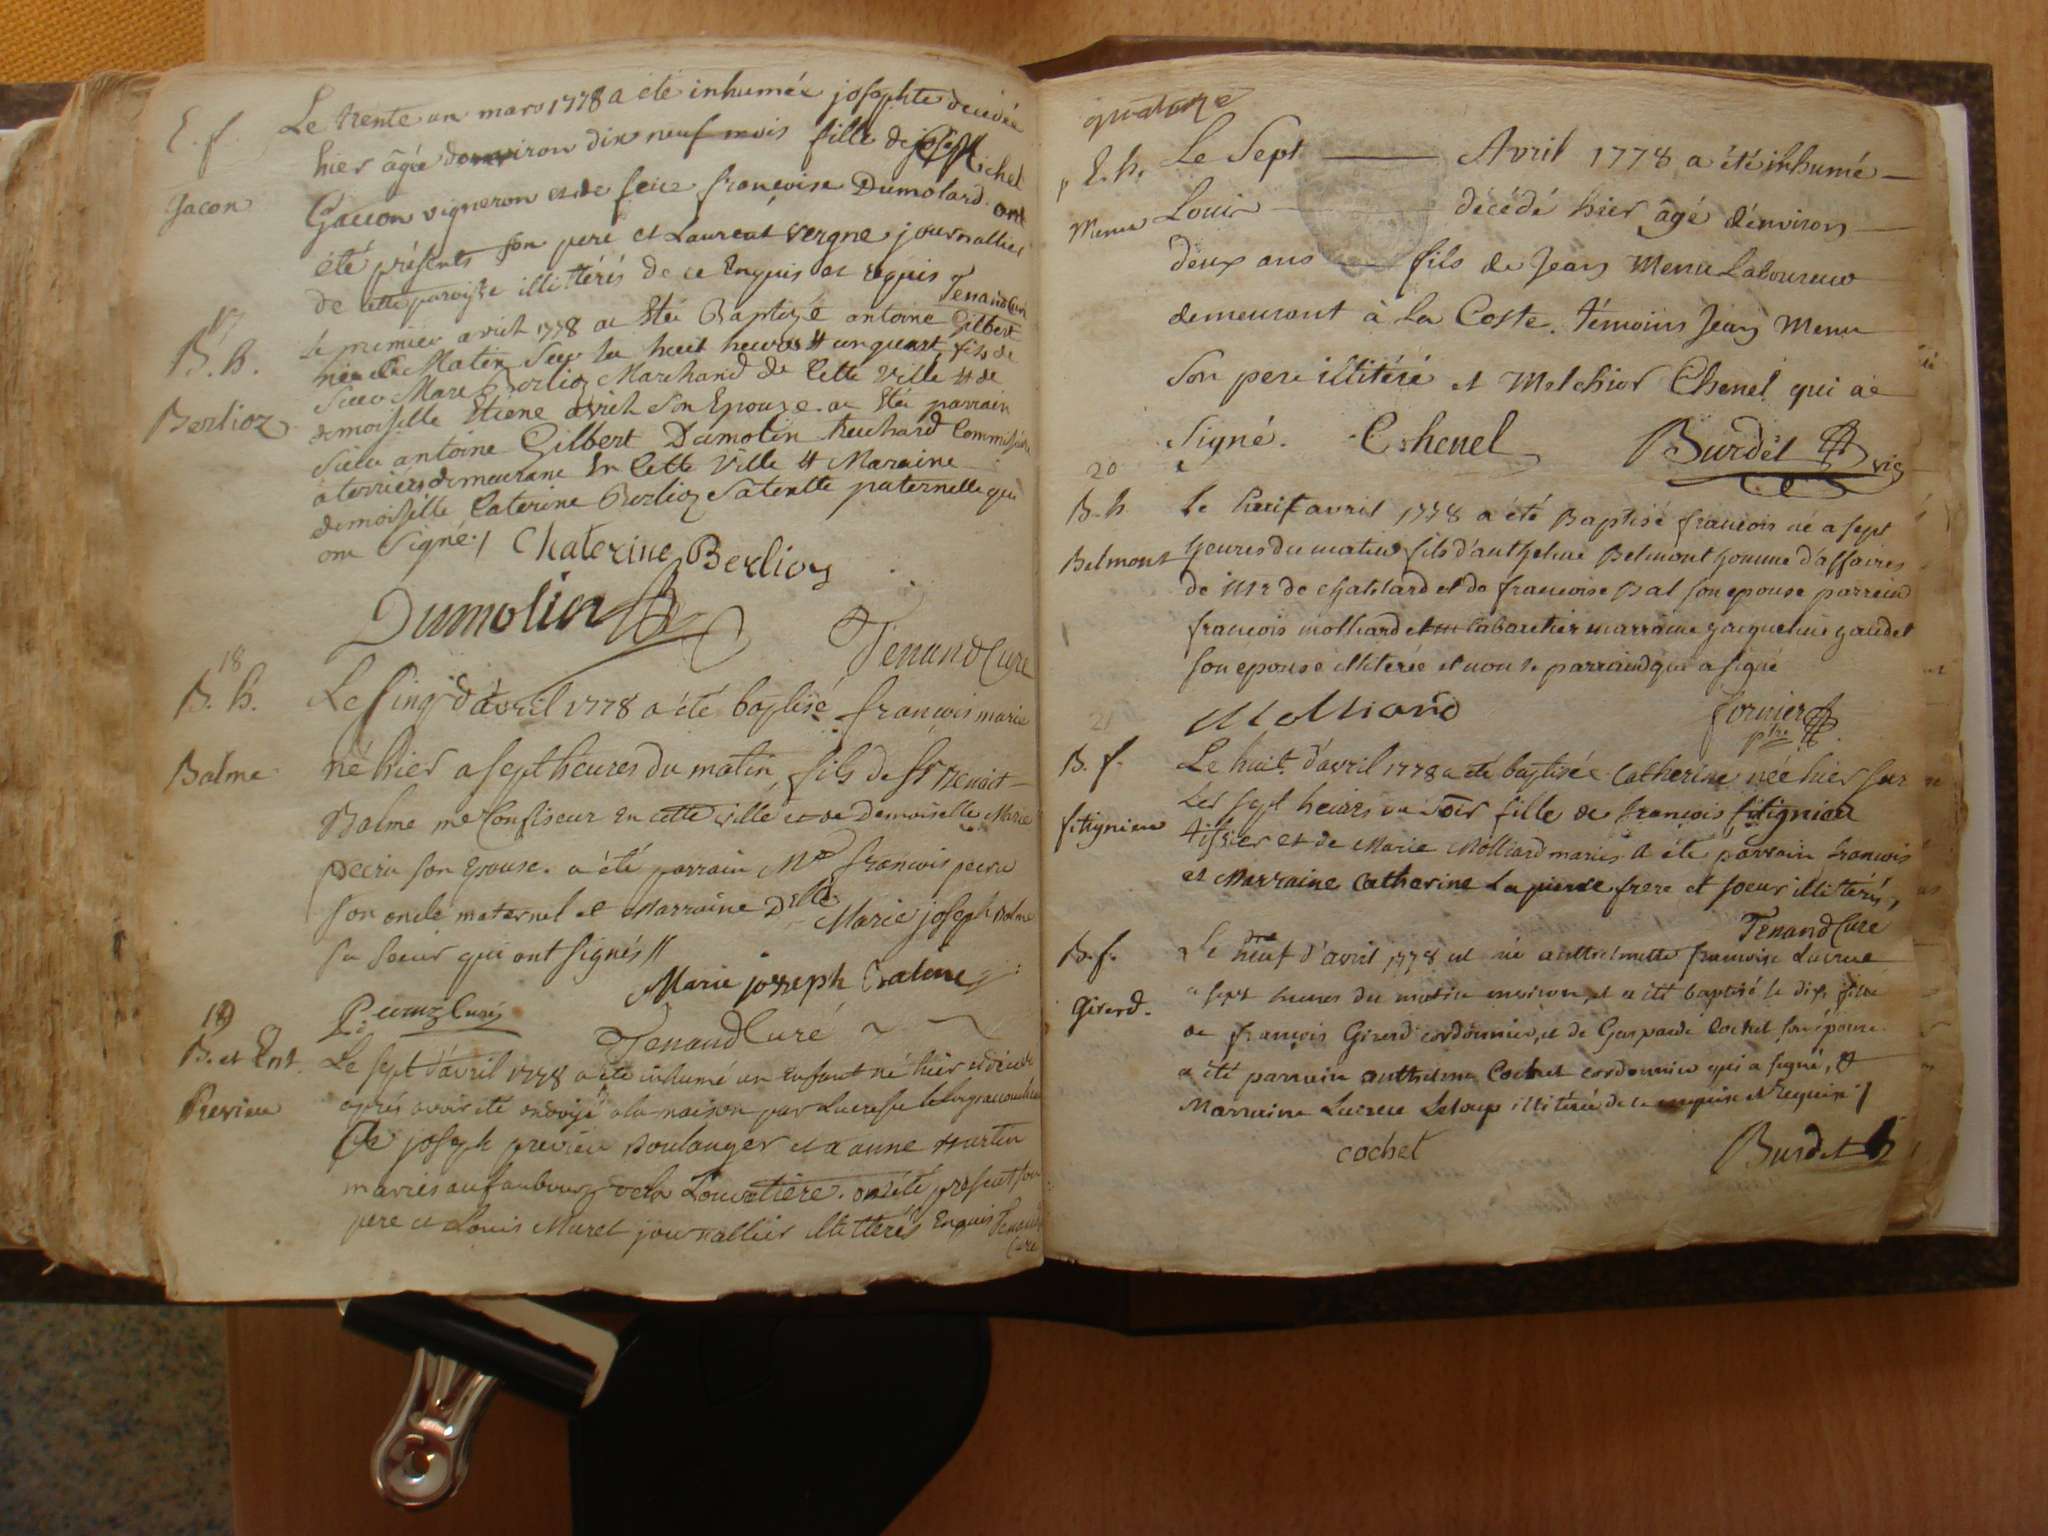 E. f.
Gacon
Le trente un mars 1778 a été inhumée josephte décédée
hier âgée d'environ dix neuf mois fille de joseph Michel
Gacon vigneron et de feue françoise Dumolard. ont
été présents son pere et Laurent Vergne journallier
de cette paroisse illittérés de ce Enquis et requis Tenand Curé
17
B. h.
Berlioz
Le premier avril 1778 a Eté Baptizé antoine Gilbert
né Le Matin Sur les huit heures & un quart, fils de
Sieur Marc Berlioz Marchand de Cette Ville & de
demoiselle Etiene avril Son Epouze. a Eté parrain
Sieur antoine Gilbert Dumolin Commissaire
a terriers demeurant En Cette Ville & Maraine
demoiselle Caterine Berlioz Sa tente paternelle qui
ont Signé./ Chaterine Berlioz
Dumolin
Tenand Curé
18
B. h.
Balme
Le sinq d'avril 1778 a été baptisé françois marie
né hier a sept heures du matin, fils de Sr Benoit
Balme me Confiseur en cette ville et de Demoiselle Marie
pecru son Epouse. a été parrain Mr françois pecru
son oncle maternel et Marraine Dlle Marie joseph Balme
sa soeur qui ont signés //
Marie josseph Balme
Curé
Tenand Curé
19
B. et Ent.
Previeu
Le sept d'avril 1778 a été inhumé un Enfant né hier et décédé
après avoir été ondoyé a la maison par Lucresse
De joseph previeu Boulanger et a anne Martin
mariés au faubourg de la Louvatiere. ont été présent son
pere et Louis Muret journallier illitterés Enquis Tenand
Curé
quatorze
E. h.
Menu
Le Sept Avril 1778 a été inhumé
Louis décédé hier âgé d'environ
deux ans fils de Jean Menu Laboureur
demeurant à La Coste. témoins Jean Menu
Son pere illitéré et Melchior Chenel qui a
Signé. Chenel Burdet vic
20
B. h
Belmont
le huit avril 1778 a été Baptisé francois né a sept
heures du matin fils d'anthelme Belmont homme d'affaires
de Mr de et de francoise Bal son epouse parrein
francois molliard cabaretier marraine jacqueline gaudet
son epouse illiterée et non le parreind qui a signé
Molliard
fornier
ptre
21
B. f.
fitignieu
Le huit d'avril 1778 a été baptisée Catherine née hier sur
Les sept heures du Soir fille de françois fitignieu
tissier et de Marie Molliard mariés. A été parrain françois
et Marraine Catherine Lapierre frere et soeur illitérés,
Tenand Curé
B. f.
Girerd.
Le neuf d'avril 1778 est née anthelmette francoise Lucrece
a sept heures du matin environ, et a été baptisé le dix fille
de françois Girerd cordonnier, et de Gasparde Cochet son épouse
a été parrain anthelme Cochet cordonnier qui a signé, &
Marraine Lucrece Leloup illiterée de ce enquise et requise /
cochet
Burdet